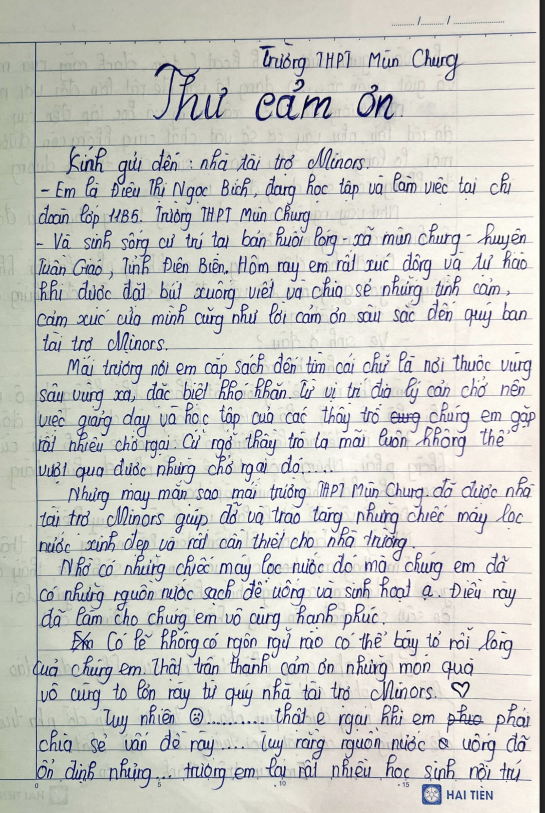 ....../....../......
Trường THPT Mùn Chung
Thư cảm ơn
Kính gửi đến : nhà tài trợ Minors.
- Em là Điêu Thị Ngọc Bích, đang học tập và làm việc tại chi
đoàn lớp 11B5. Trường THPT Mùn Chung
- Và sinh sông cư trú tại bản huôi lóng - xã mùn chung - huyện
Tuần Giáo, Tỉnh Điên Biên. Hôm ray em rất xúc động và tự hào
khi được đặt bút xuông viết và chia sẻ những tình cảm,
cảm xúc của mình cũng như lời cảm ơn sâu sắc đến quý ban
tài trợ Minors.
Mái trường nơi em cắp sách đến tìm cái chữ là nơi thuộc vùng
sâu vùng xa, đặc biệt khó khăn. Từ vị trí địa lý cản chở nên
việc giảng dạy và học tập của các thầy trò cung chúng em gặp
rất nhiều chở ngại. Cứ ngỡ thầy trò ta mãi luôn không thể
vượt qua được những chở ngại đó......
Nhưng may mắn sao mái trường THPT Mùn Chung. đã được nhà
tài trợ Minors giúp đỡ và trao tặng những chiếc máy lọc
nước xinh đẹp và rất cần thiết cho nhà trường.
Nhờ có những chiếc máy lọc nước đó mà chúng em đã
có những nguồn nước sạch để uống và sinh hoạt ạ. Điều ray
đã làm cho chúng em vô cùng hạnh phúc.
Em Có lẽ không có ngôn ngữ rào có thể bày tỏ rỗi lòng
của chúng em. Thật trân thành cảm ơn những món quà
vô cùng to lớn rày từ quý nhà tài trợ Minors. ♡
Tuy nhiên ☹......... thật e ngại khi em phải
chia sẻ vấn đề rày.... Tuy rằng nguồn nước uống đã
ổn định nhưng... trường em lại rất nhiều học sinh nội trú
0 5 10 15
HẢI TIẾN